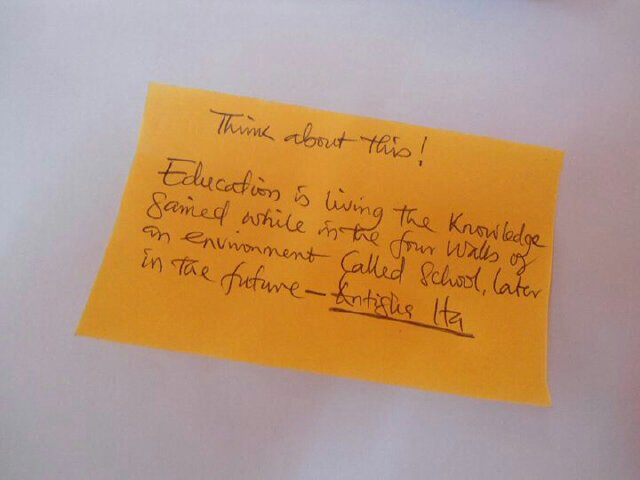 Think about this!
Education is living the Knowledge
gained while in the four walls of
an environment Called School, later
in the future — Ita